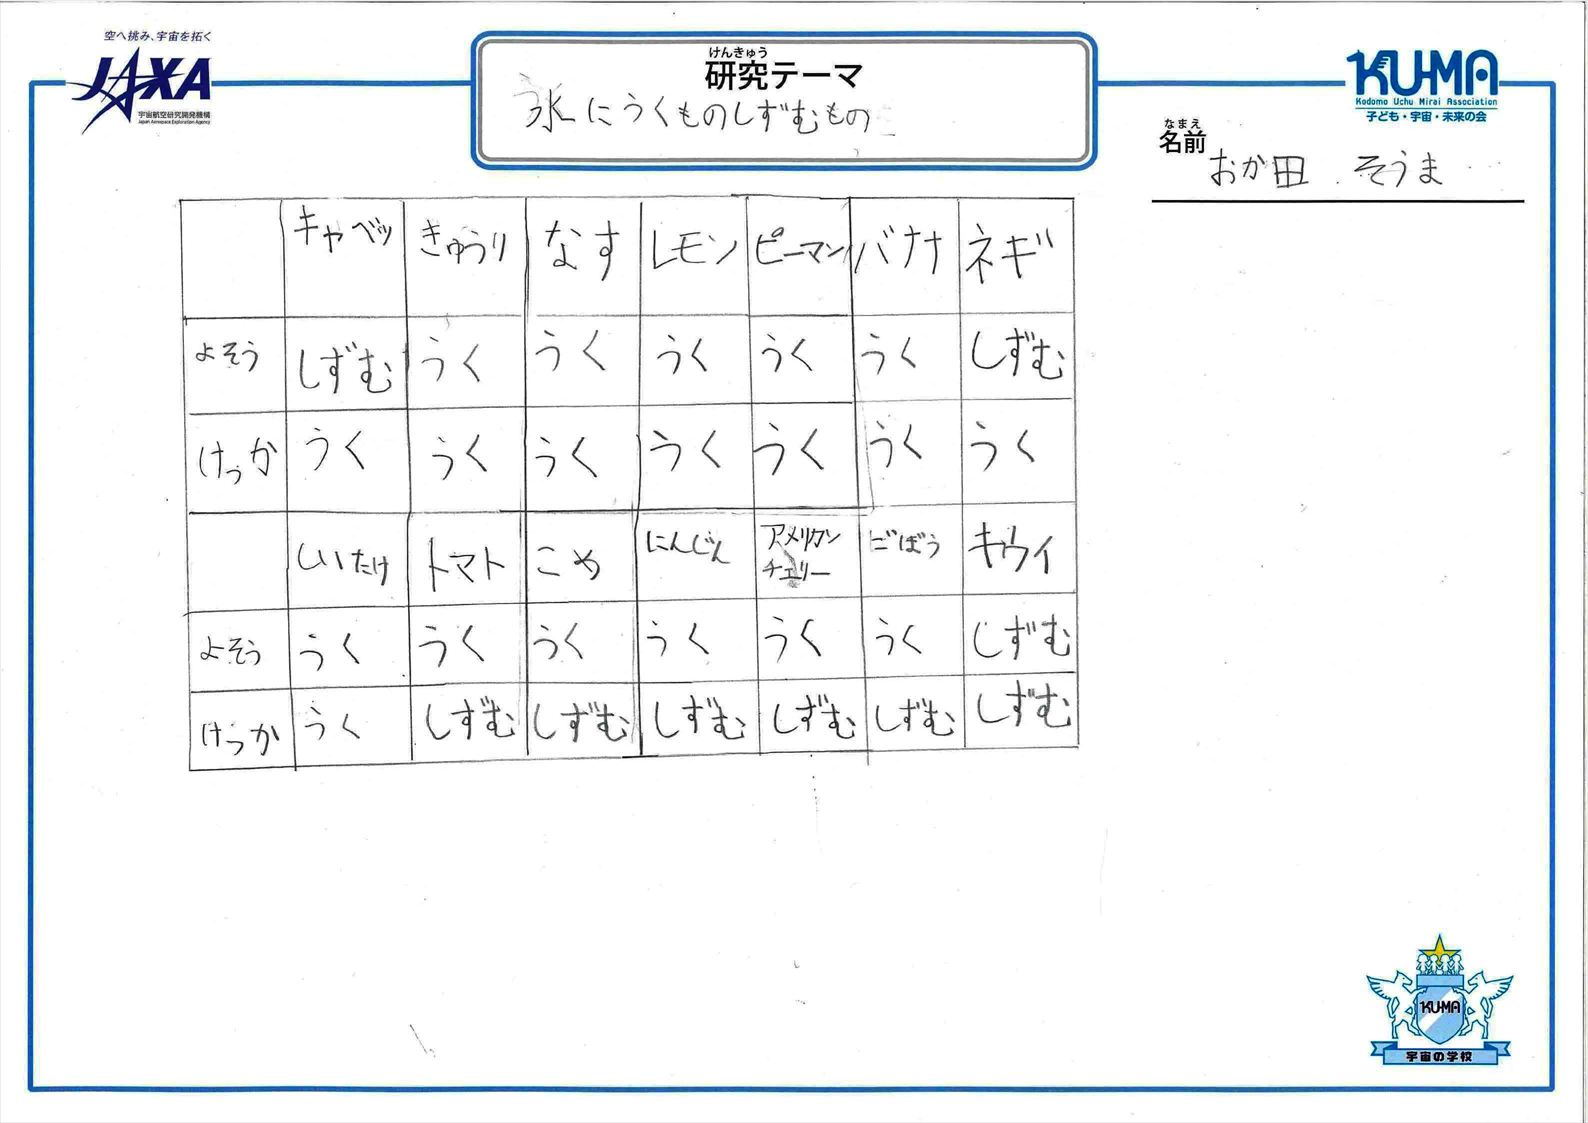 空へ挑み、宇宙を拓く
JAXA
宇宙航空研究開発機構
Japan Aerospace Exploration Agency
けんきゅう
研究テーマ
水にうくものしずむもの
KU-MA
Kodomo Uchu Mirai Association
子ども・宇宙・未来の会
なまえ
名前
おか田 そうま
キャベツ きゅうり なす レモン ピーマン バナナ ネギ
よそう しずむ うく うく うく うく うく しずむ
けっか うく うく うく うく うく うく うく
しいたけ トマト こめ にんじん アメリカンチェリー ごぼう キウイ
よそう うく うく うく うく うく うく しずむ
けっか うく しずむ しずむ しずむ しずむ しずむ しずむ
KU-MA
宇宙の学校